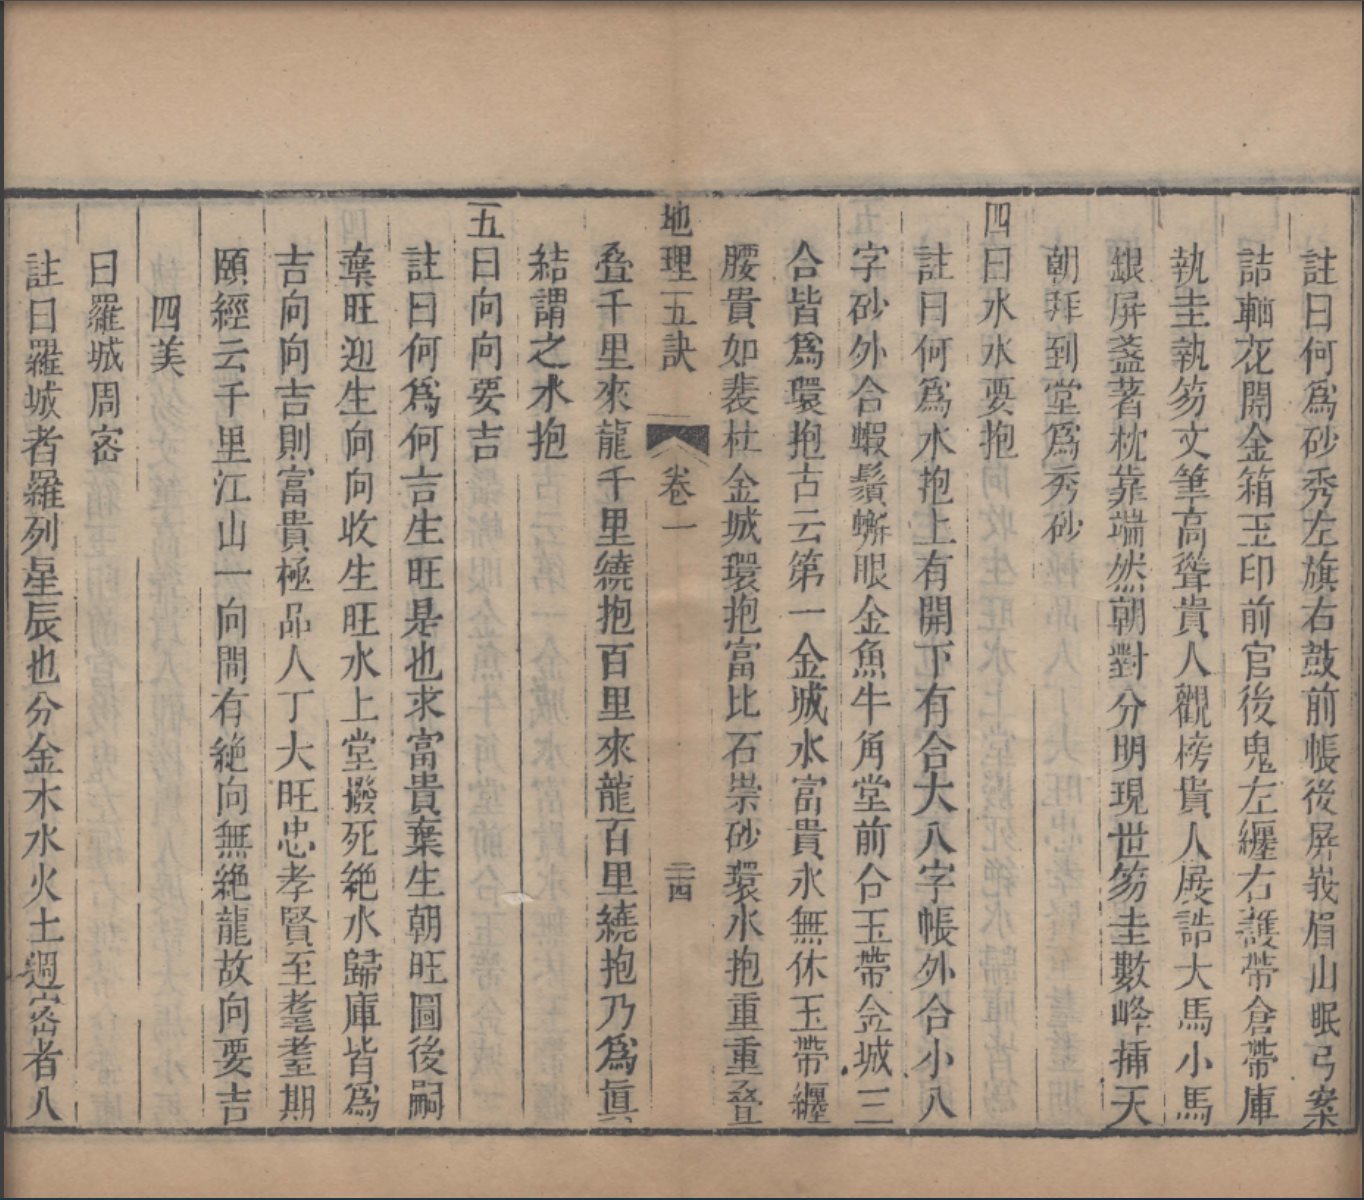 註曰何爲砂秀左旗右鼓前帳後屏峩眉山眠弓案
誥軸花開金箱玉印前官後鬼左纏右護帶倉帶庫
執圭執笏文筆高聳貴人觀榜貴人展誥大馬小馬
銀屏盞著枕靠端然朝對分明現世笏圭數峰揷天
朝拜到堂爲秀砂
四曰水水要抱
註曰何爲水抱上有開下有合大八字帳外合小八
字砂外合蝦鬚蠏眼金魚牛角堂前合玉帶金城三
合皆爲環抱古云第一金城水富貴永無休玉帶纏
腰貴如裴杜金城環抱富比石崇砂環水抱重重叠
叠千里來龍千里繞抱百里來龍百里繞抱乃爲眞
結謂之水抱
五曰向向要吉
註曰何爲何吉生旺是也求富貴棄生朝旺圖後嗣
棄旺迎生向向收生旺水上堂撥死絶水歸庫皆爲
吉向向吉則富貴極品人丁大旺忠孝賢至耄耋期
頤經云千里江山一向間有絶向無絶龍故向要吉
四美
曰羅城周密
註曰羅城者羅列星辰也分金木水火土週密者八
地理五訣
卷一
二四